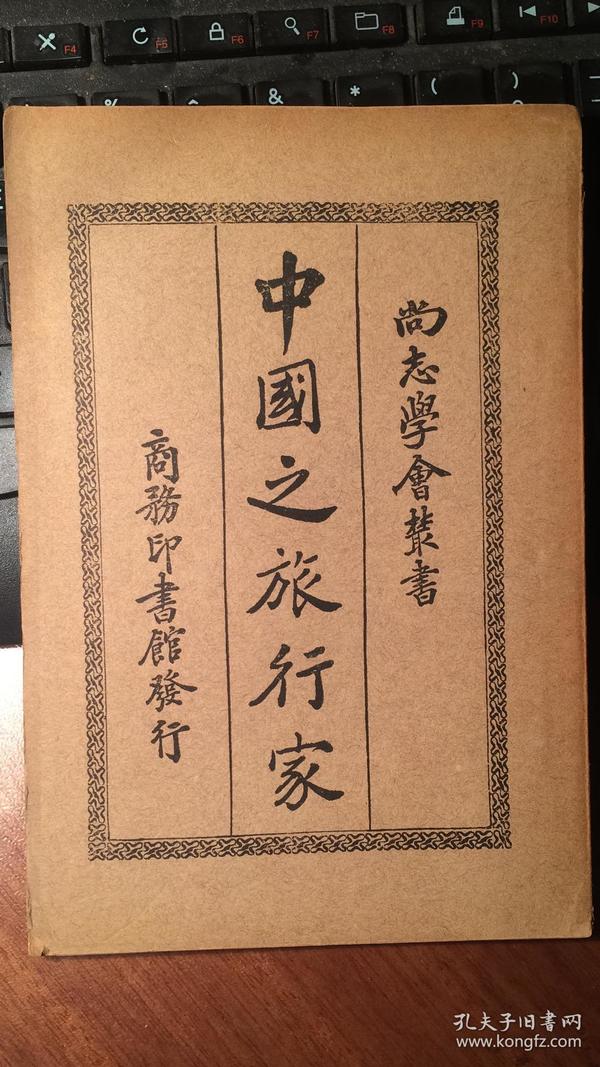 尚志學會叢書
中國之旅行家
商務印書館發行
F4
F5
F6
F7
F8
F9
F10
%
&
*
(
)
孔夫子旧书网
www.kongfz.com